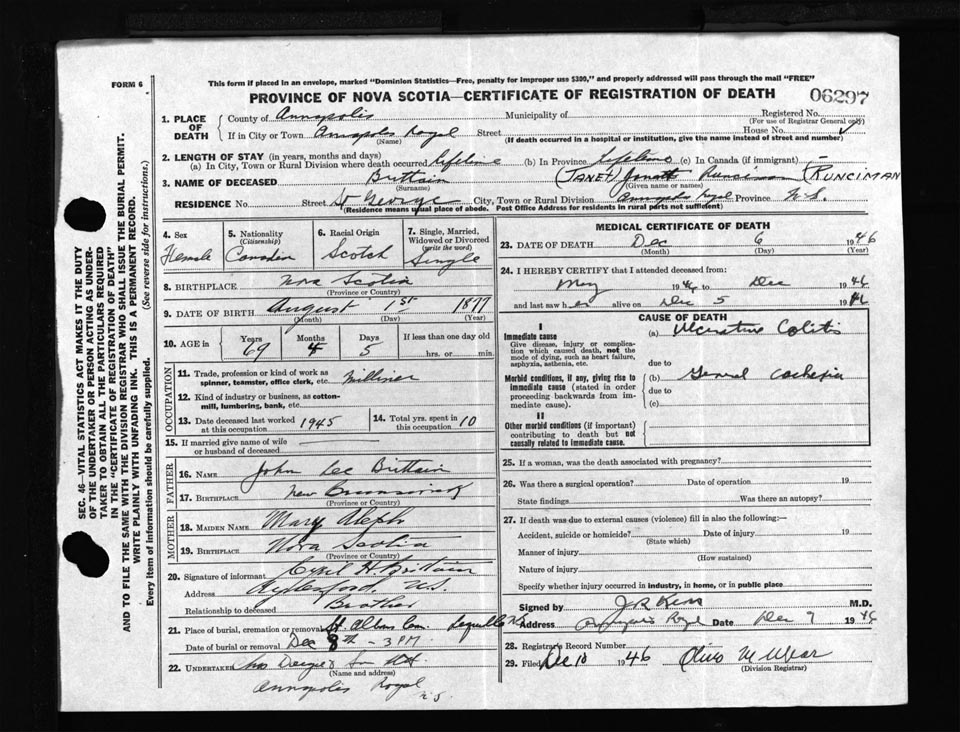 FORM 6
This form if placed in an envelope, marked "Dominion Statistics—Free, penalty for improper use $300," and properly addressed will pass through the mail "FREE"
PROVINCE OF NOVA SCOTIA—CERTIFICATE OF REGISTRATION OF DEATH
06297
1. PLACE OF DEATH
County of Annapolis Municipality of Registered No.
(For use of Registrar General only)
If in City or Town Annapolis Royal Street House No.
(Name) (If death occurred in a hospital or institution, give the name instead of street and number)
2. LENGTH OF STAY (in years, months and days)
(a) In City, Town or Rural Division where death occurred lifetime (b) In Province lifetime (c) In Canada (if immigrant) —
3. NAME OF DECEASED Brittain (JANET Runciman (RUNCIMAN
(Surname) (Given name or names)
RESIDENCE No. Street St George City, Town or Rural Division Annapolis Royal Province N.S.
(Residence means usual place of abode. Post Office Address for residents in rural parts not sufficient)
4. Sex Female
5. Nationality (Citizenship) Canadian
6. Racial Origin Scotch
7. Single, Married, Widowed or Divorced (write the word) Single
8. BIRTHPLACE Nova Scotia
(Province or Country)
9. DATE OF BIRTH August 1st 1877
(Month) (Day) (Year)
10. AGE in Years Months Days If less than one day old
69 4 5 hrs. or min.
OCCUPATION
11. Trade, profession or kind of work as spinner, teamster, office clerk, etc. Milliner
12. Kind of industry or business, as cotton-mill, lumbering, bank, etc.
13. Date deceased last worked at this occupation 1945
14. Total yrs. spent in this occupation 10
15. If married give name of wife or husband of deceased
FATHER
16. NAME John Lee Brittain
17. BIRTHPLACE New Brunswick
(Province or Country)
MOTHER
18. MAIDEN NAME Mary
19. BIRTHPLACE Nova Scotia
(Province or Country)
20. Signature of informant Cyril H. Brittain
Address N.S.
Relationship to deceased Brother
21. Place of burial, cremation or removal St. Albans Cem. Lequille
Date of burial or removal Dec 8th — 3 PM
22. UNDERTAKER
(Name and address)
Annapolis Royal N.S.
MEDICAL CERTIFICATE OF DEATH
23. DATE OF DEATH Dec 6 1946
(Month) (Day) (Year)
24. I HEREBY CERTIFY that I attended deceased from:
May 194 to Dec 1946
and last saw her alive on Dec 5 1946
CAUSE OF DEATH
I
Immediate cause
Give disease, injury or complication which caused death, not the mode of dying, such as heart failure, asphyxia, asthenia, etc.
(a) Ulcerative Colitis
due to
Morbid conditions, if any, giving rise to immediate cause (stated in order proceeding backwards from immediate cause).
(b) General Cachexia
due to
(c)
II
Other morbid conditions (if important) contributing to death but not causally related to immediate cause.
25. If a woman, was the death associated with pregnancy?
26. Was there a surgical operation? Date of operation 19
State findings Was there an autopsy?
27. If death was due to external causes (violence) fill in also the following:—
Accident, suicide or homicide? Date of injury 19
(State which)
Manner of injury
(How sustained)
Nature of injury
Specify whether injury occurred in industry, in home, or in public place
Signed by J R Kerr M.D.
Address Annapolis Royal Date Dec 7 1946
28. Registrar's Record Number
29. Filed Dec 10 1946
(Division Registrar)
SEC. 46 - VITAL STATISTICS ACT MAKES IT THE DUTY
OF THE UNDERTAKER OR PERSON ACTING AS UNDER-
TAKER TO OBTAIN ALL THE PARTICULARS REQUIRED
IN THE "CERTIFICATE OF REGISTRATION OF DEATH"
AND TO FILE THE SAME WITH THE DIVISION REGISTRAR WHO SHALL ISSUE THE BURIAL PERMIT.
WRITE PLAINLY WITH UNFADING INK. THIS IS A PERMANENT RECORD.
Every item of information should be carefully supplied. (See reverse side for instructions.)